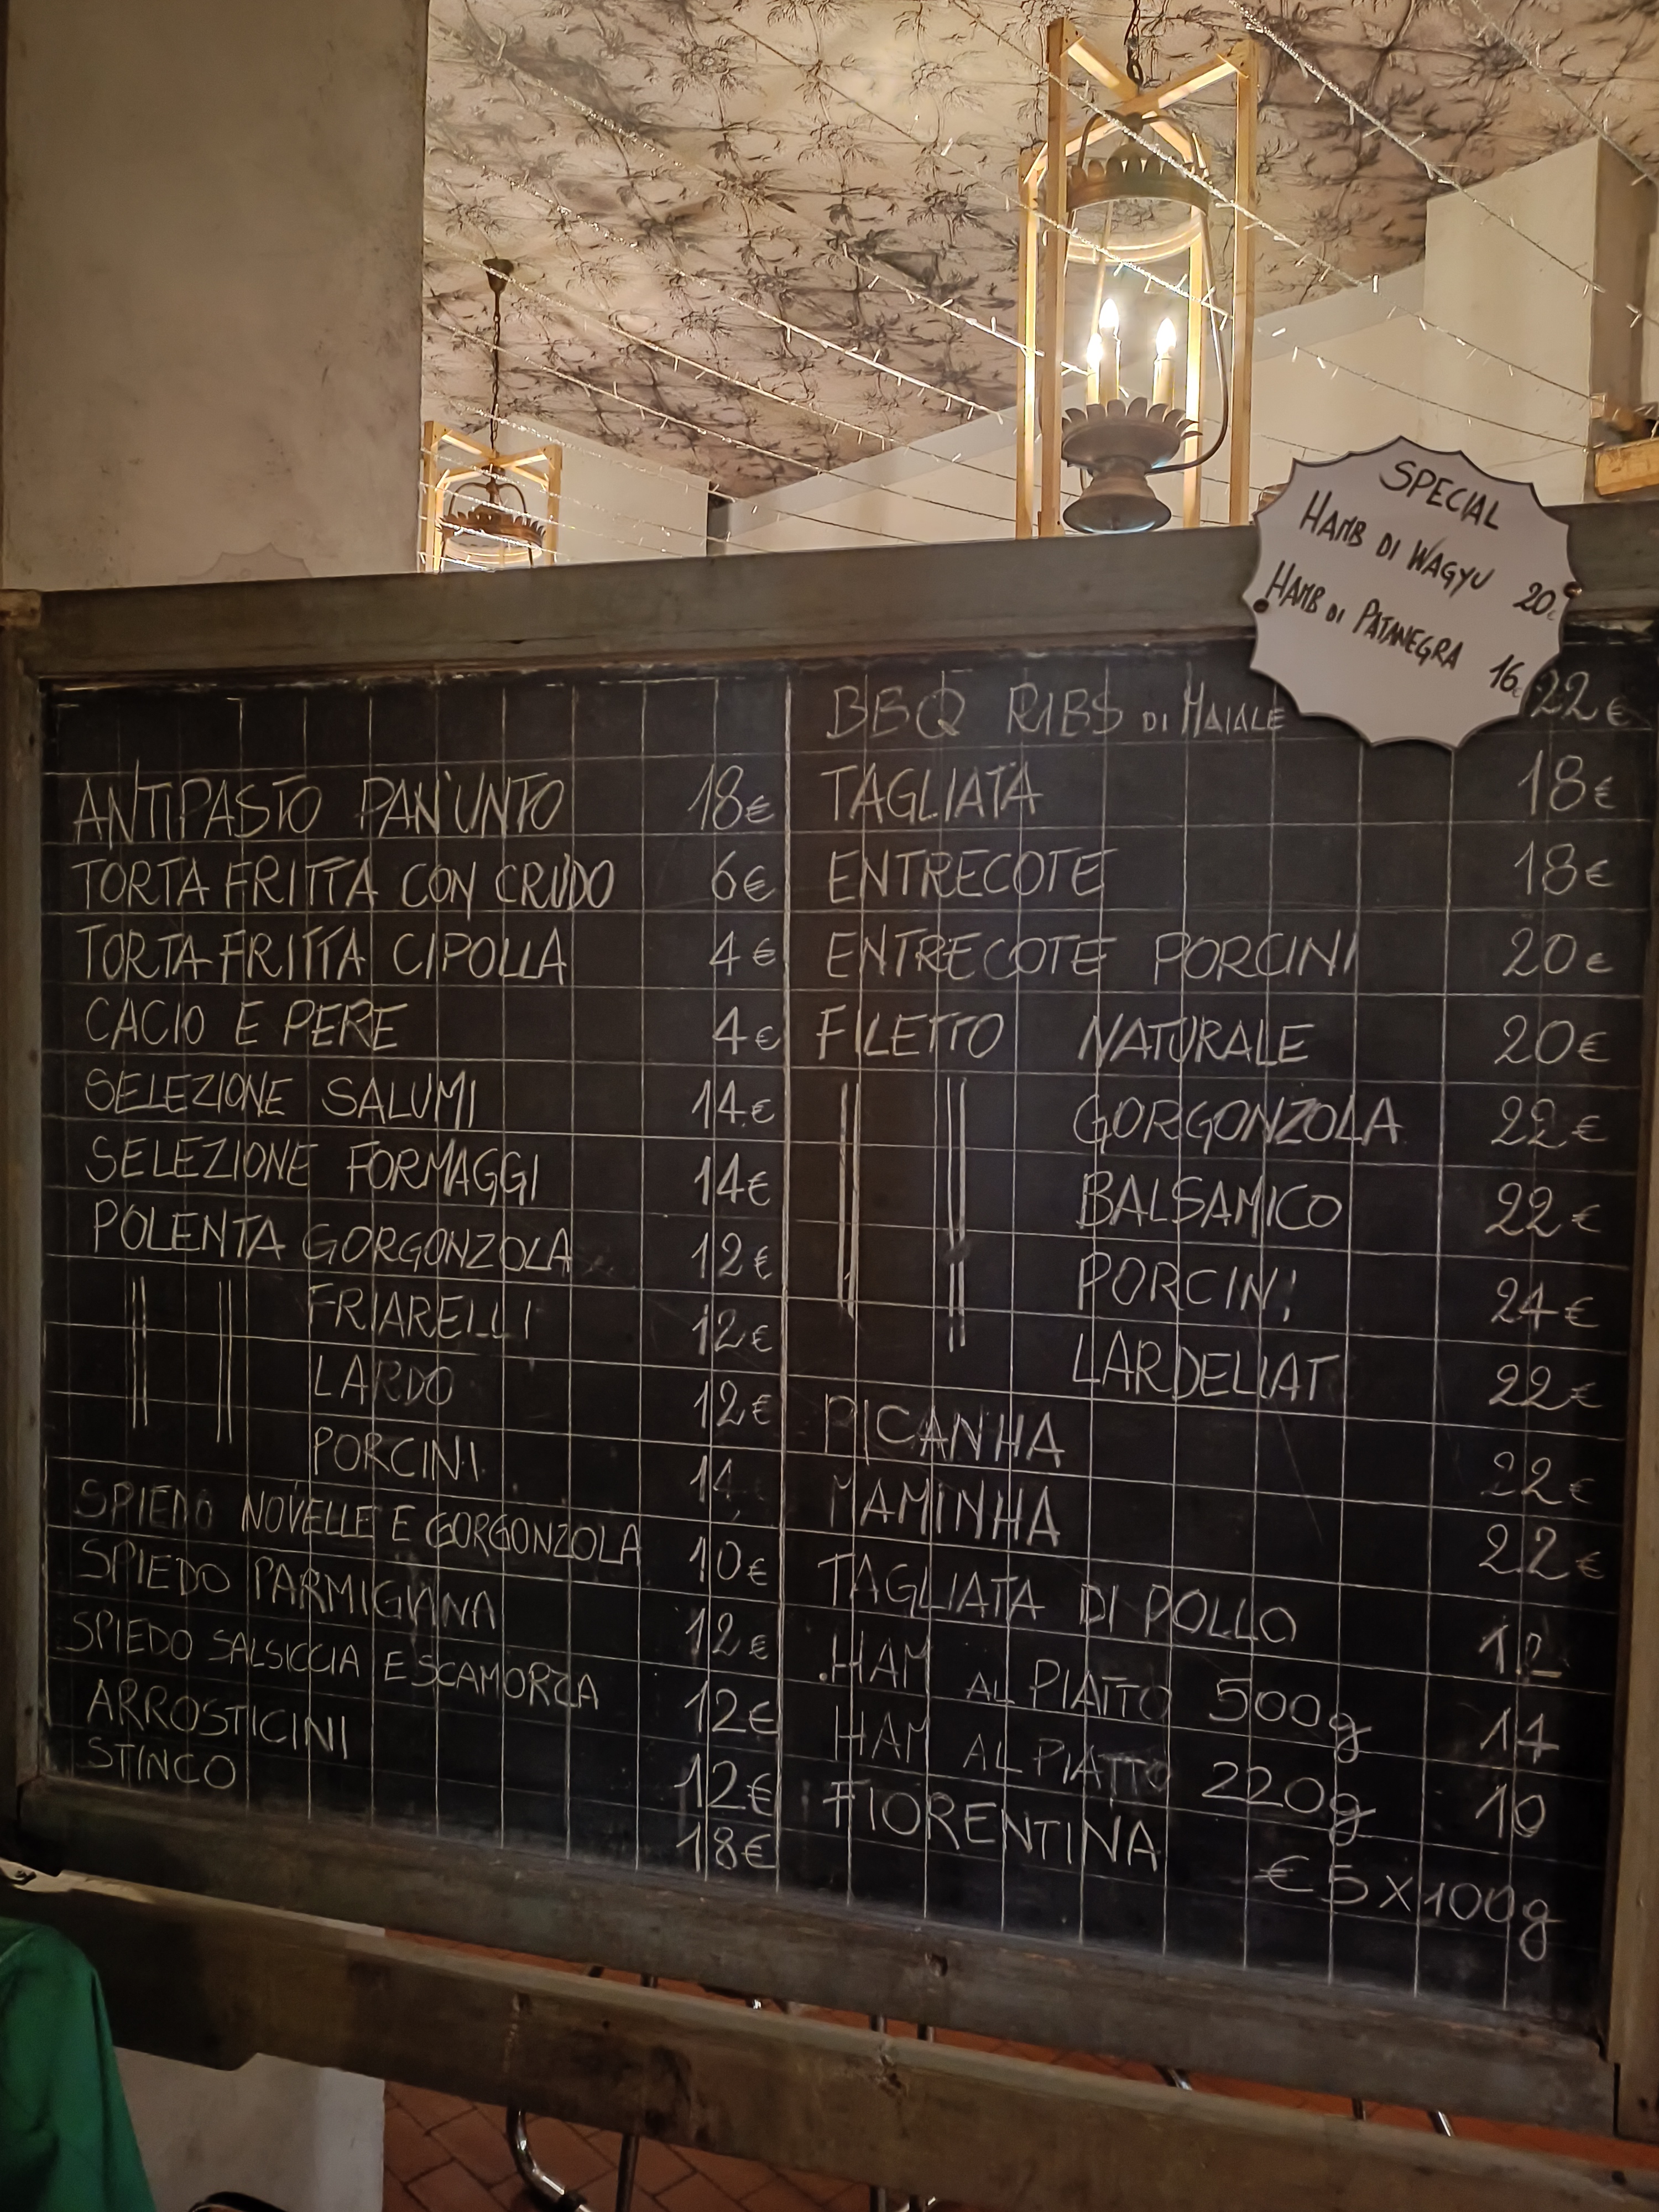 SPECIAL
HAMB DI WAGYU 20€
HAMB DI PATANEGRA 16€
ANTIPASTO PAN'UNTO 18€
TORTA FRITTA CON CRUDO 6€
TORTA FRITTA CIPOLLA 4€
CACIO E PERE 4€
SELEZIONE SALUMI 14€
SELEZIONE FORMAGGI 14€
POLENTA GORGONZOLA 12€
|| || FRIARELLI 12€
LARDO 12€
PORCINI 14
SPIEDO NOVELLE E GORGONZOLA 10€
SPIEDO PARMIGIANA 12€
SPIEDO SALSICCIA E SCAMORZA 12€
ARROSTICINI 12€
STINCO 18€
BBQ RIBS DI MAIALE 22€
TAGLIATA 18€
ENTRECOTE 18€
ENTRECOTE PORCINI 20€
FILETTO NATURALE 20€
|| || GORGONZOLA 22€
BALSAMICO 22€
PORCINI 24€
LARDELLAT 22€
PICANHA 22€
MAMINHA 22€
TAGLIATA DI POLLO 12
HAM AL PIATTO 500g
HAM AL PIATTO 220g 10
FIORENTINA €5X100g